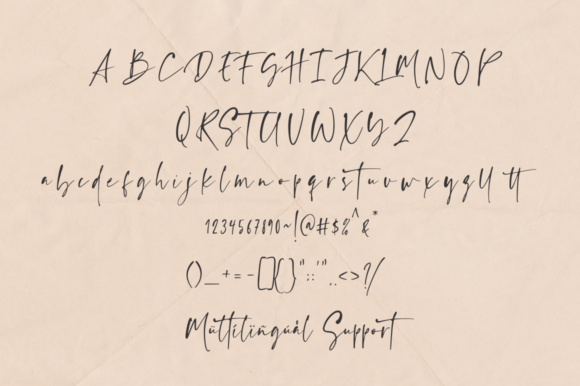 A B C D E F G H I J K L M N O P
Q R S T U V W X Y Z
a b c d e f g h i j k l m n o p q r s t u v w x y z ll tt
1234567890~!@#$%^&*
()_+=-[]{}"::'"..<>?/
Multilingual Support